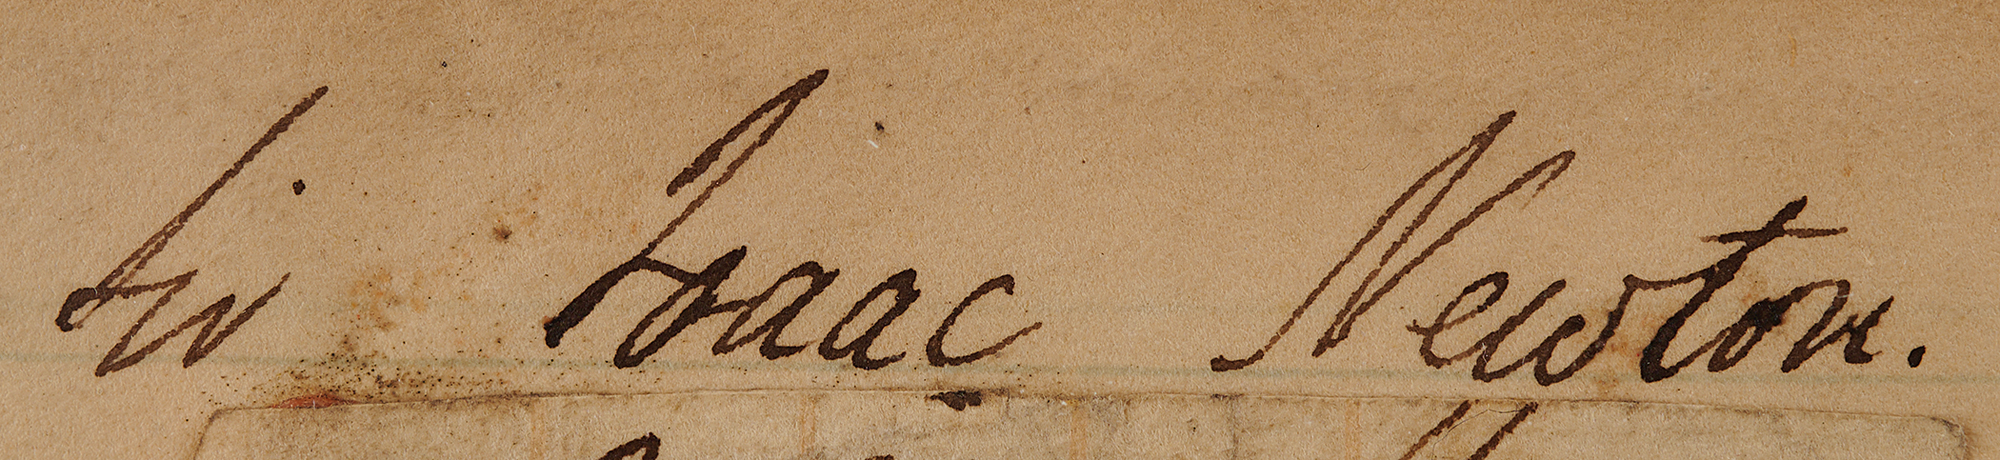 Sir Isaac Newton.